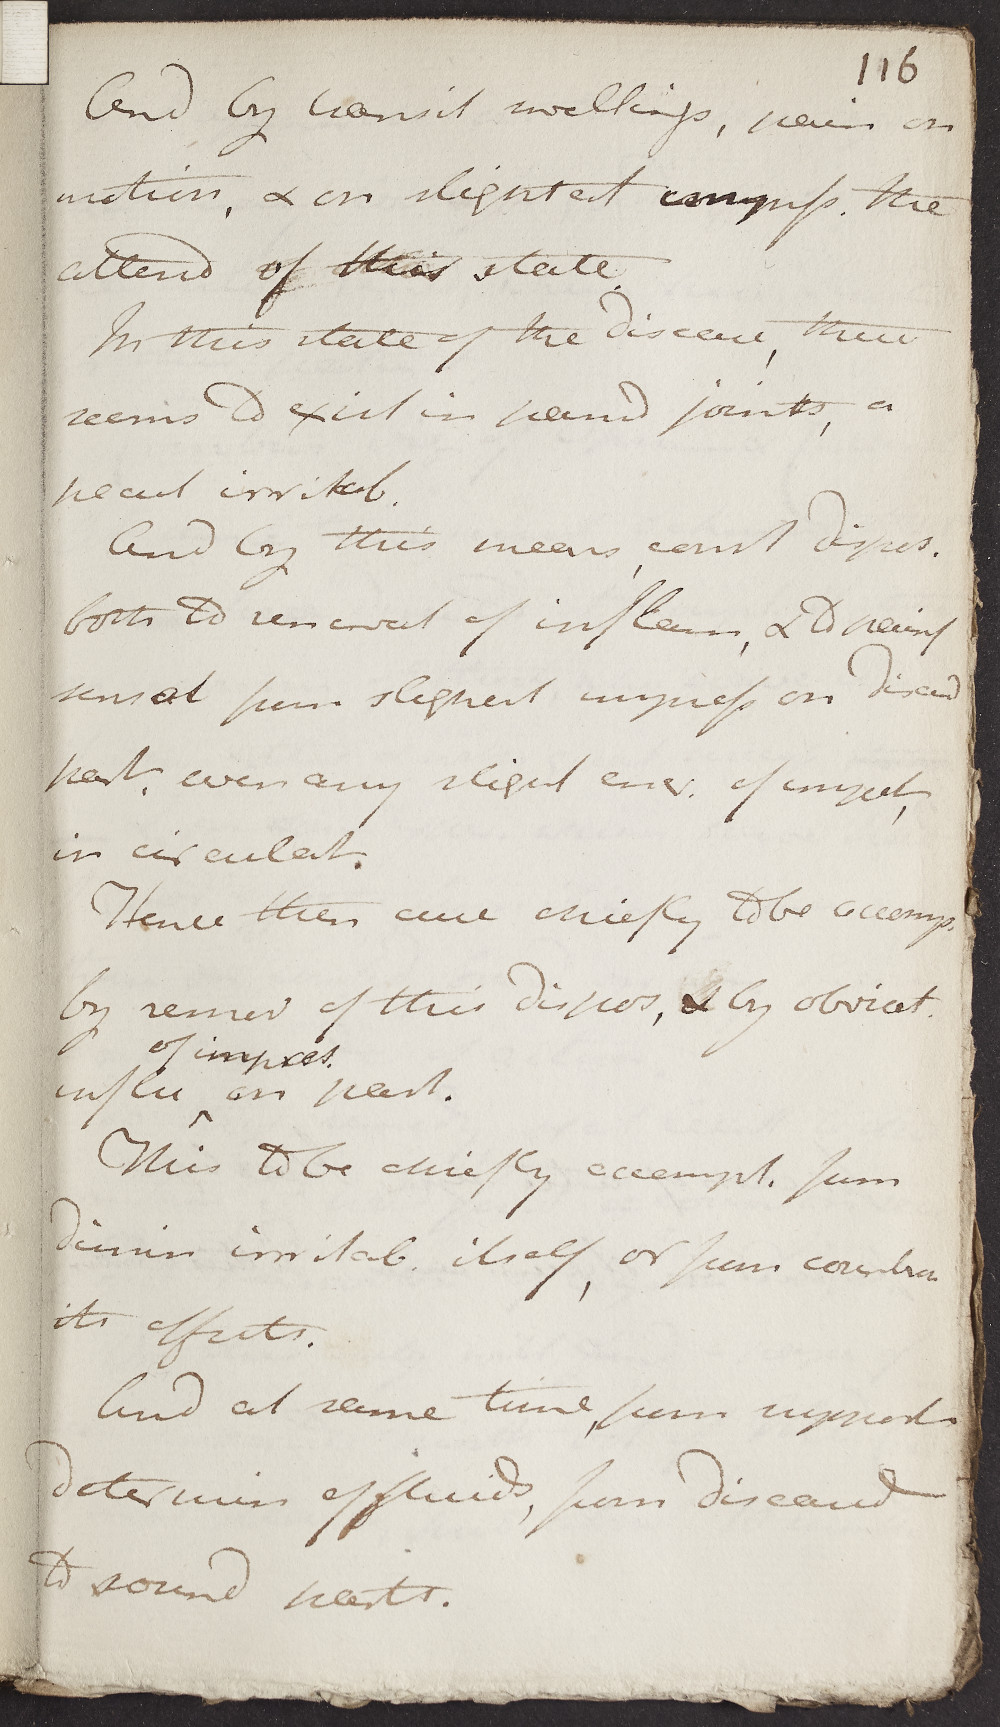 116
And by transit swellings, pain on
motion, & on slightest impress. the
attend of this state.
In this state of the disease, there
seems to exist in pained joints, a
pecul irritab.
And by this means, const dispos.
both to renewal of inflam, & to painf
sensat from slightest impress on diseasd
part, even any slight of impet,
in circulat.
Hence then cure chiefly to be accomp.
by remov of this dispos, & by obviat.
of impres.
influ on part.
This to be chiefly accompl. from
dimin irritab. itself, or from counter
its effects.
And at same time, from support
determin of fluids, from diseased
to sound parts.